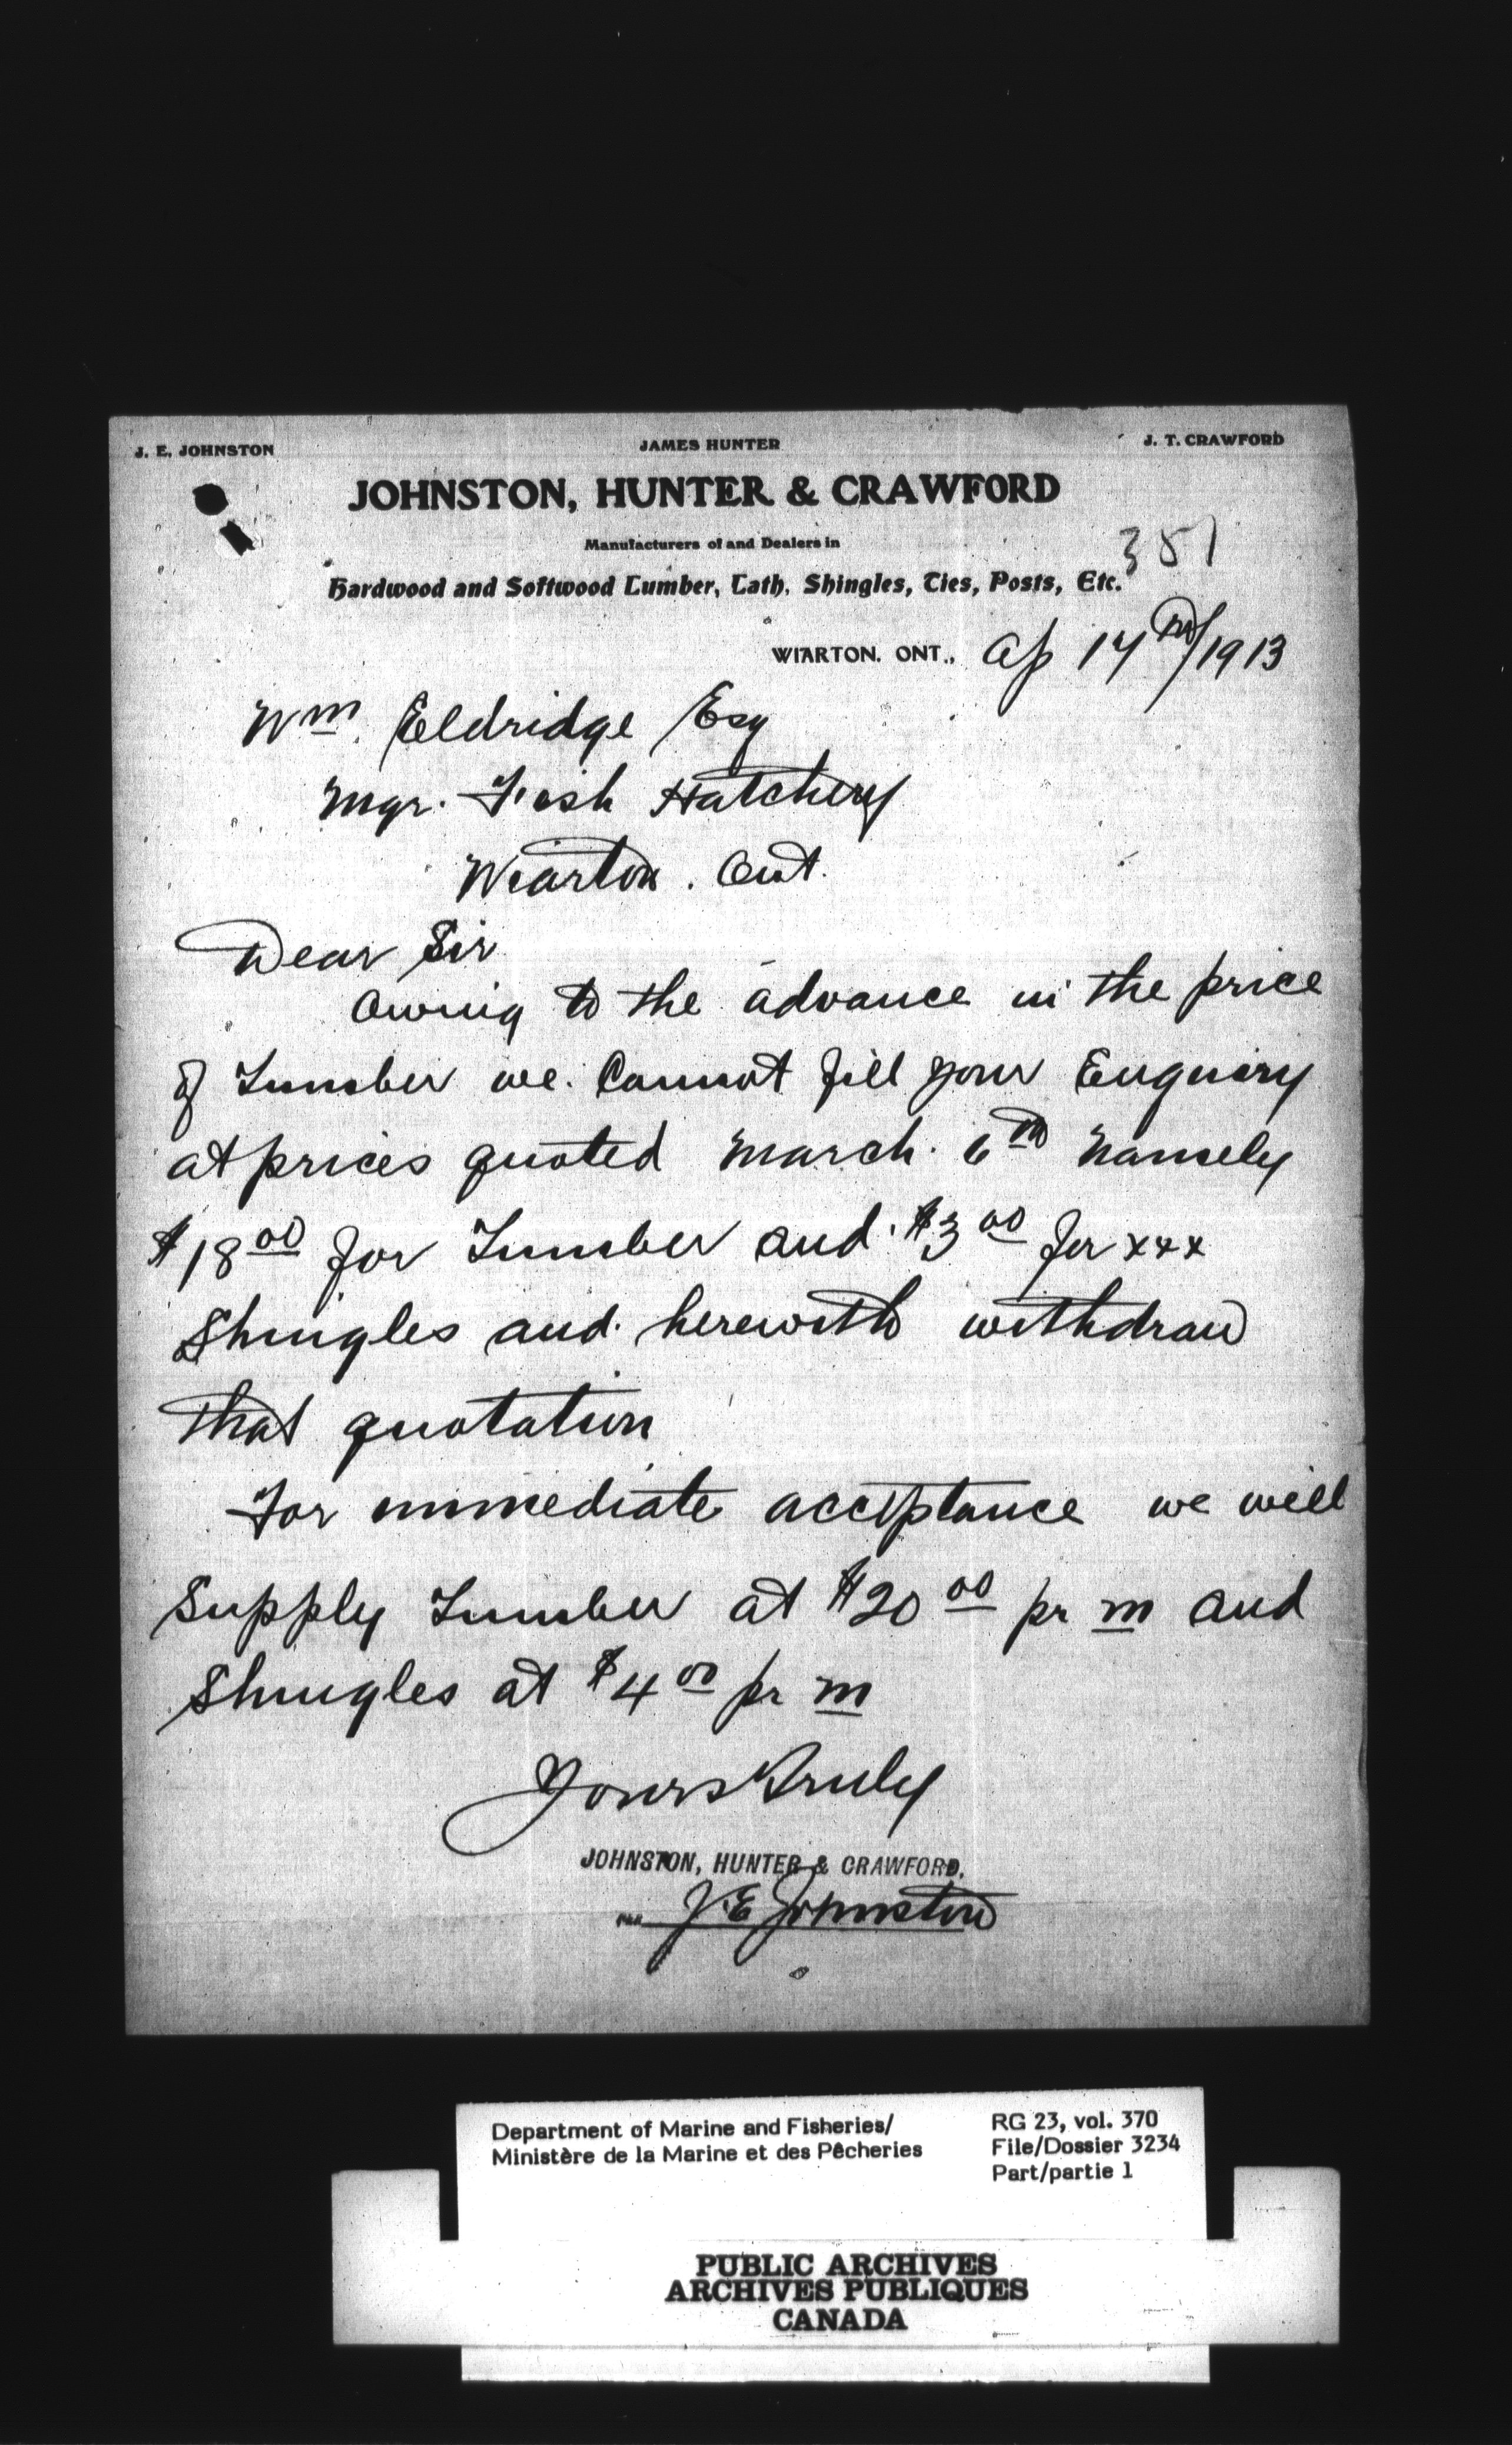 J. E. JOHNSTON JAMES HUNTER J. T. CRAWFORD
JOHNSTON, HUNTER & CRAWFORD
Manufacturers of and Dealers in
351
Hardwood and Softwood Lumber, Lath, Shingles, Ties, Posts, Etc.
WIARTON. ONT., Ap 17th/1913
Wm. Eldridge Esq
Mgr. Fish Hatchery
Wiarton. Ont.
Dear Sir
Owing to the advance in the price
of Lumber we. Cannot fill your Enquiry
at prices quoted March. 6th Namely
$18 00 for Lumber and $3 00 for xxx
Shingles and. herewith withdraw
that quotation
For immediate acceptance we will
Supply Lumber at $20 00 pr m and
Shingles at $4 00 pr m
Yours Truly
JOHNSTON, HUNTER & CRAWFORD.
PER J.E Johnston
Department of Marine and Fisheries/
Ministère de la Marine et des Pêcheries
RG 23, vol. 370
File/Dossier 3234
Part/partie 1
PUBLIC ARCHIVES
ARCHIVES PUBLIQUES
CANADA